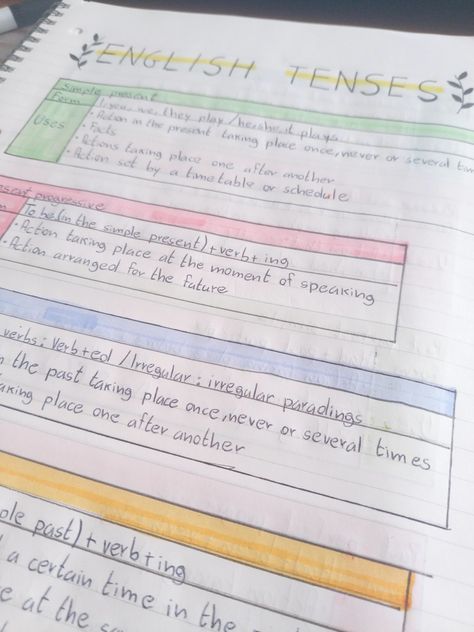 ENGLISH TENSES
Simple present
Form I, you, we, they play / he, she, it plays
Uses • Action in the present taking place once, never or several
• Facts
• Actions taking place one after another
• Action set by a timetable or schedule
progressive
To be (in the simple present) + verb + ing
• Action taking place at the moment of speaking
• Action arranged for the future
verbs: Verb + ed / Irregular: irregular paradings
the past taking place once, never or several times
place one after another
past) + verb + ing
a certain time in the
at the